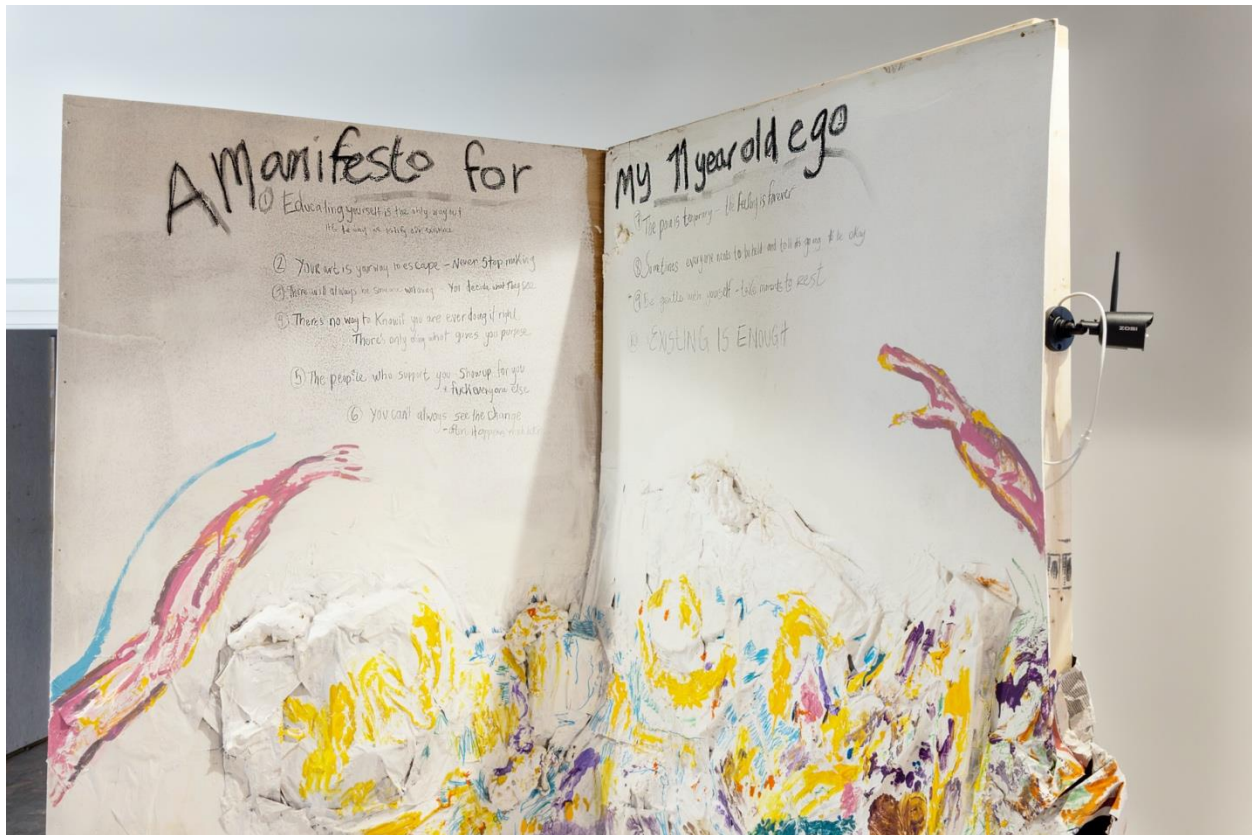 A Manifesto for
① Educating yourself is the only way out
② YOUR art is your way to escape – Never Stop making
③ There will always be someone watching – You decide what they see
④ There's no way to Know if you are ever doing it right
There's only doing what gives you purpose
⑤ The people who support you show up for you
+ fuck everyone else
⑥ You can't always see the change
My 11 year old ego
⑦ The pain is temporary – the feeling is forever
⑧ Sometimes everyone needs to be held and told its going to be okay
⑨ Be gentle with yourself – take moments to REST
⑩ EXISTING IS ENOUGH
ZOSI